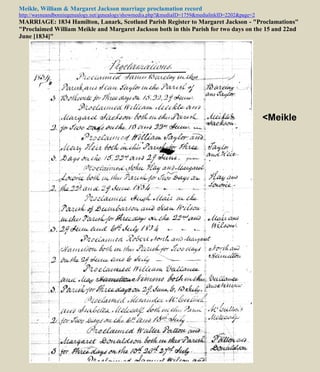 Meikle, William & Margaret Jackson marriage proclamation record
http://eastmandboonisegenealogy.net/genealogy/showmedia.php?&mediaID=1759&medialinkID=2202&page=2
MARRIAGE: 1834 Hamilton, Lanark, Scotland Parish Register to Margaret Jackson - "Proclamations"
"Proclaimed William Meikle and Margaret Jackson both in this Parish for two days on the 15 and 22nd
June [1834]"
Proclamations
1834 Proclaimed James Barclay in this Barclay
Parish and Jean Taylor in the Parish of and Taylor
3 Bothwell for three days on 15, 22, 29 June
Proclaimed William Meikle and
Margaret Jackson both in this Parish Meikle &
2 for Two days on the 15 and 22nd June Jackson
<Meikle
Proclaimed William Taylor and
Mary Weir both in this Parish for three Taylor
3 Days on the 15, 22nd and 29 June and Weir
Proclaimed John Hay and Margaret
Lowrie both in this Parish for Two Days on Hay and
2 the 22nd and 29 June 1834 Lowrie
Proclaimed Hugh Mair in the
Parish of Dumbarton and Jean Wilson
in this Parish for three days on the 22nd and Mair and
3 29 June and 6th July 1834 Wilson
Proclaimed Robert North and Margaret
Hamilton both in this Parish for Two days North and
2 on the 29 June and 6 July Hamilton
Proclaimed William
and May both in this
3 Parish for three days on 29 June, 6, 13 July
Proclaimed Alexander
and Isabella Metcalf both in the Parish
2 for Two days on the 6th and 13th July Metcalf
Proclaimed Walter Patton and
Margaret Donaldson both in this Parish Patton and
3 for three days on the 13th 20th 27th July Donaldson
Proclaimed Samuel Wilson